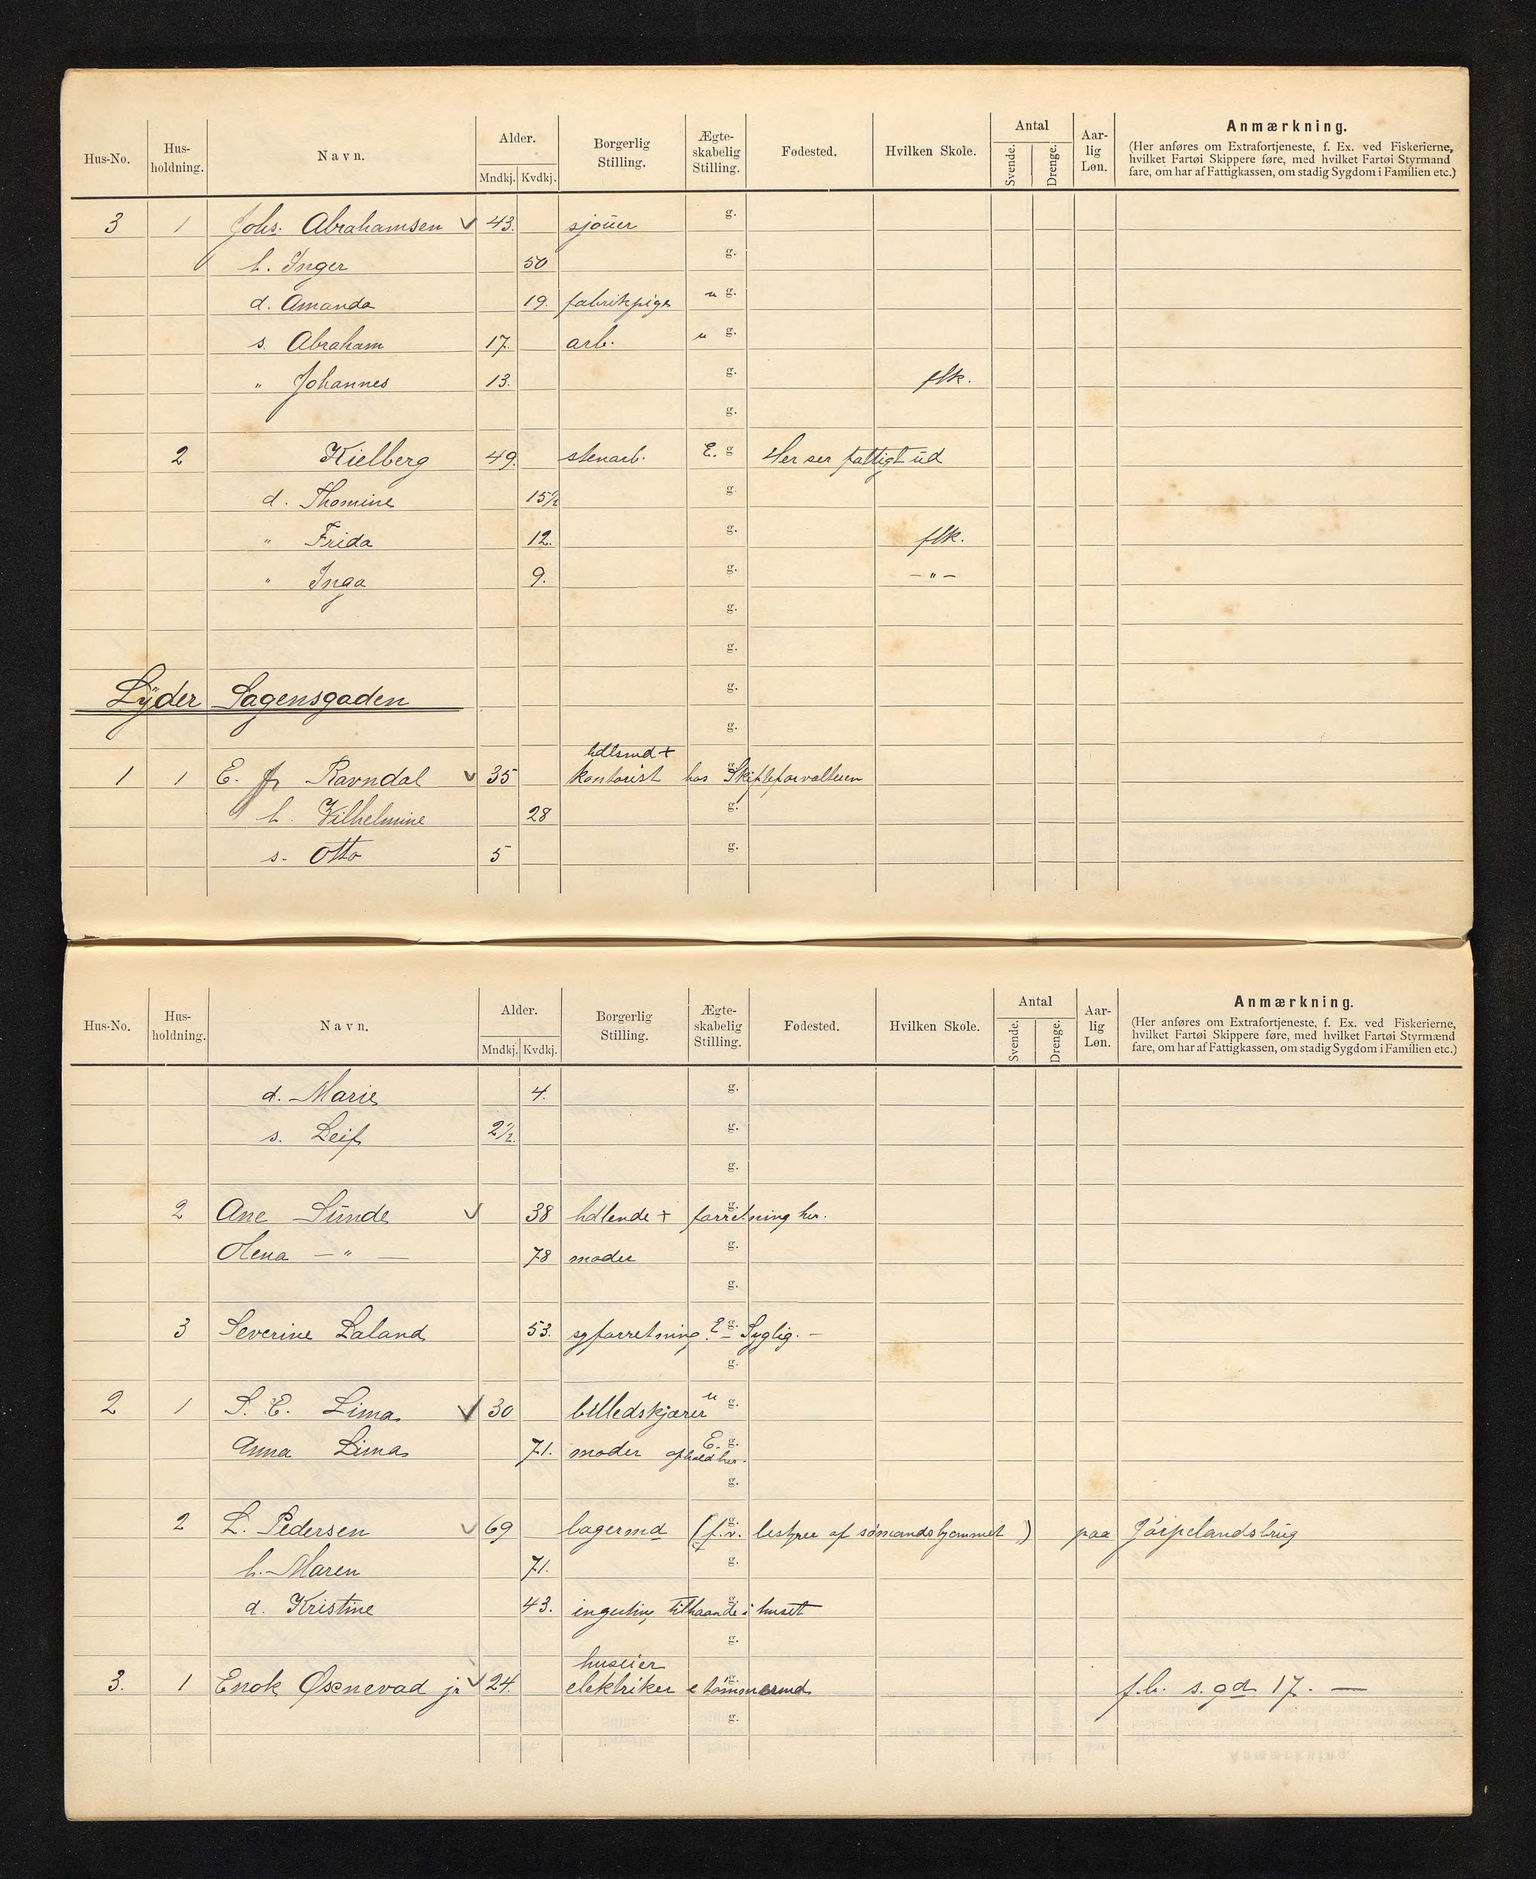 Hus-No. Hus-holdning. Navn. Alder. Mndkj. Kvdkj. Borgerlig Stilling. Ægte-skabelig Stilling. Fødested. Hvilken Skole. Antal Svende. Drenge. Aar-lig Løn. Anmærkning.
(Her anføres om Extrafortjeneste, f. Ex. ved Fiskerierne, hvilket Fartøi Skippere føre, med hvilket Fartøi Styrmænd fare, om har af Fattigkassen, om stadig Sygdom i Familien etc.)
3 1 Johs. Abrahamsen 43. sjouer g.
h. Inger 50 g.
d. Amanda 19. fabrikpige u g.
s. Abraham 17. arb. u g.
" Johannes 13. g. flk.
g.
2 Kielberg 49. stenarb. E. g Her ser fattigt ud
d. Thomine 15½ g.
" Frida 12. g. flk.
" Inga 9. g. – " –
g.
g.
Lyder Sagensgaden g.
g.
hdlsmd +
1 1 E. Ravndal 35 kontorist hos Skifteforvalteren g.
h. Vilhelmine 28 g.
s. Otto 5 g.
Hus-No. Hus-holdning. Navn. Alder. Mndkj. Kvdkj. Borgerlig Stilling. Ægte-skabelig Stilling. Fødested. Hvilken Skole. Antal Svende. Drenge. Aar-lig Løn. Anmærkning.
(Her anføres om Extrafortjeneste, f. Ex. ved Fiskerierne, hvilket Fartøi Skippere føre, med hvilket Fartøi Styrmænd fare, om har af Fattigkassen, om stadig Sygdom i Familien etc.)
d. Marie 4. g.
s. Leif 2½. g.
g.
2 Ane Sunde 38 hdlende + forretning her. g.
Olena – " – 78 moder g.
g.
3 Severine Laland 53. syforretning. E g. Syglig. –
g.
2 1 S. E. Lima 30 billedskjærer u g.
Anna Lima 71. moder E. g. ophold her.
g.
2 L. Pedersen 69 bagermd g. (f.v. bestyrer af sømandshjemmet) paa Jørpelandsbrug
h. Maren 71. g.
d. Kristine 43. ingenting, tilhaande i huset g.
g.
huseier
3. 1 Enok Øsnevad jr 24. elektriker & tømmermd g. f.b. s. gd 17. —
g.